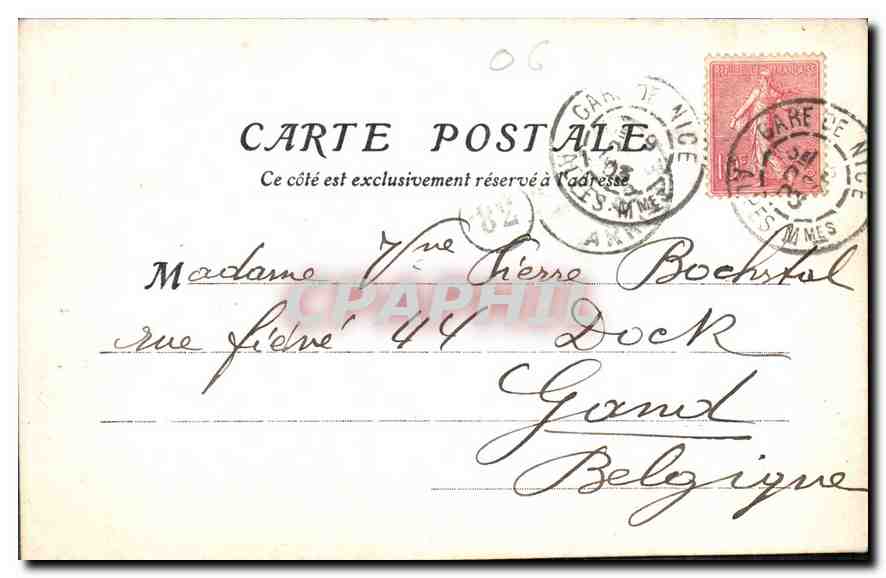 06
CARTE POSTALE
Ce côté est exclusivement réservé à l'adresse
REPUBLIQUE FRANÇAISE
10c
GARE DE NICE
ALPES-MMES
GARE DE NICE
ALPES MMES
82
Madame Vve Pierre Bochstal
rue fiévé 44 Dock
Gand
Belgique
CPAPHIL